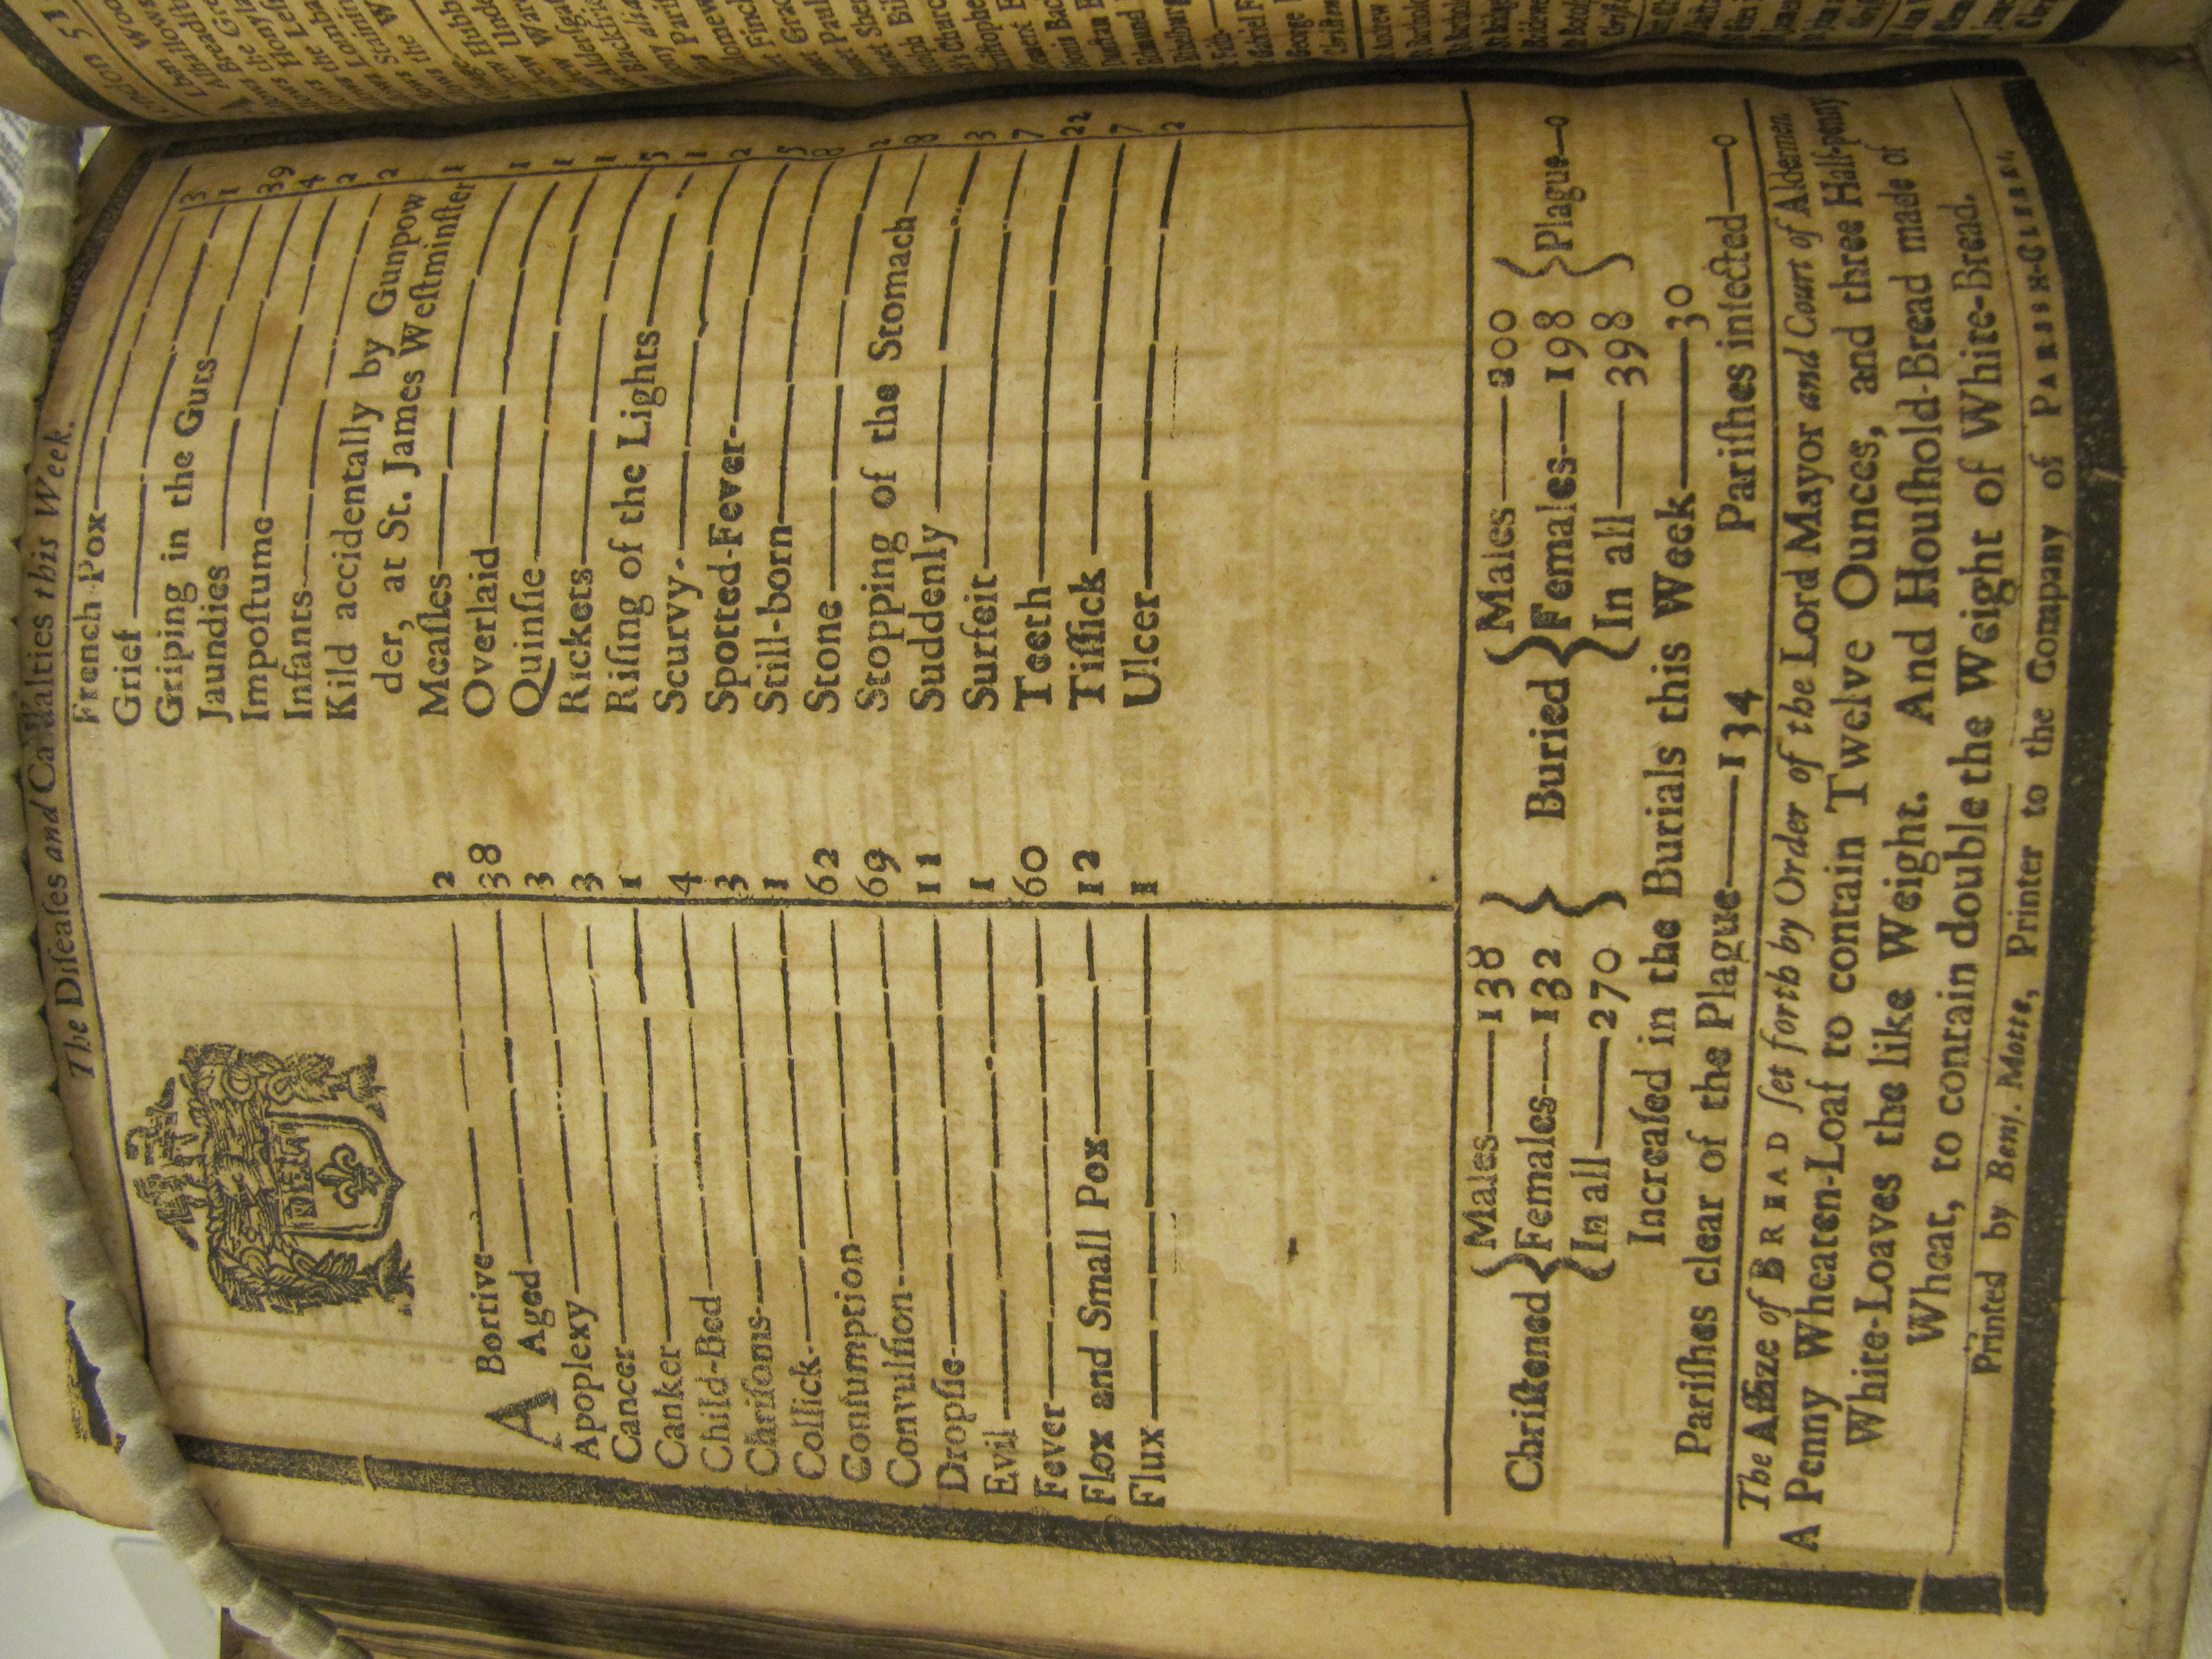 The Diſeaſes and Caſualties this Week.
NEW
ABortive 2
Aged 38
Apoplexy 3
Cancer 3
Canker 1
Child-Bed 4
Chriſoms 3
Collick 1
Conſumption 62
Convulſion 69
Dropſie 11
Evil 1
Fever 60
Flox and Small Pox 12
Flux 1
French-Pox 3
Grief 1
Griping in the Guts 39
Jaundies 4
Impoſtume 2
Infants 2
Kild accidentally by Gunpow
der, at St. James Weſtminſter 1
Meaſles 1
Overlaid 1
Quinſie 1
Rickets 5
Riſing of the Lights 1
Scurvy 2
Spotted-Fever 5
Still-born 8
Stone 2
Stopping of the Stomach 8
Suddenly 3
Surfeit 7
Teeth 22
Tiſſick 7
Ulcer 2
Chriſtened { Males—138 Females—132 In all—270 }
Buried { Males—200 Females—198 In all—398 } Plague—0
Increaſed in the Burials this Week—30
Pariſhes clear of the Plague—134 Pariſhes infected—0
The Aſſize of BREAD ſet forth by Order of the Lord Mayor and Court of Aldermen
A Penny Wheaten-Loaf to contain Twelve Ounces, and three Half-penny
White-Loaves the like Weight. And Houſhold-Bread made of
Wheat, to contain double the Weight of White-Bread.
Printed by Benj. Motte, Printer to the Company of PARISH-CLERKS.